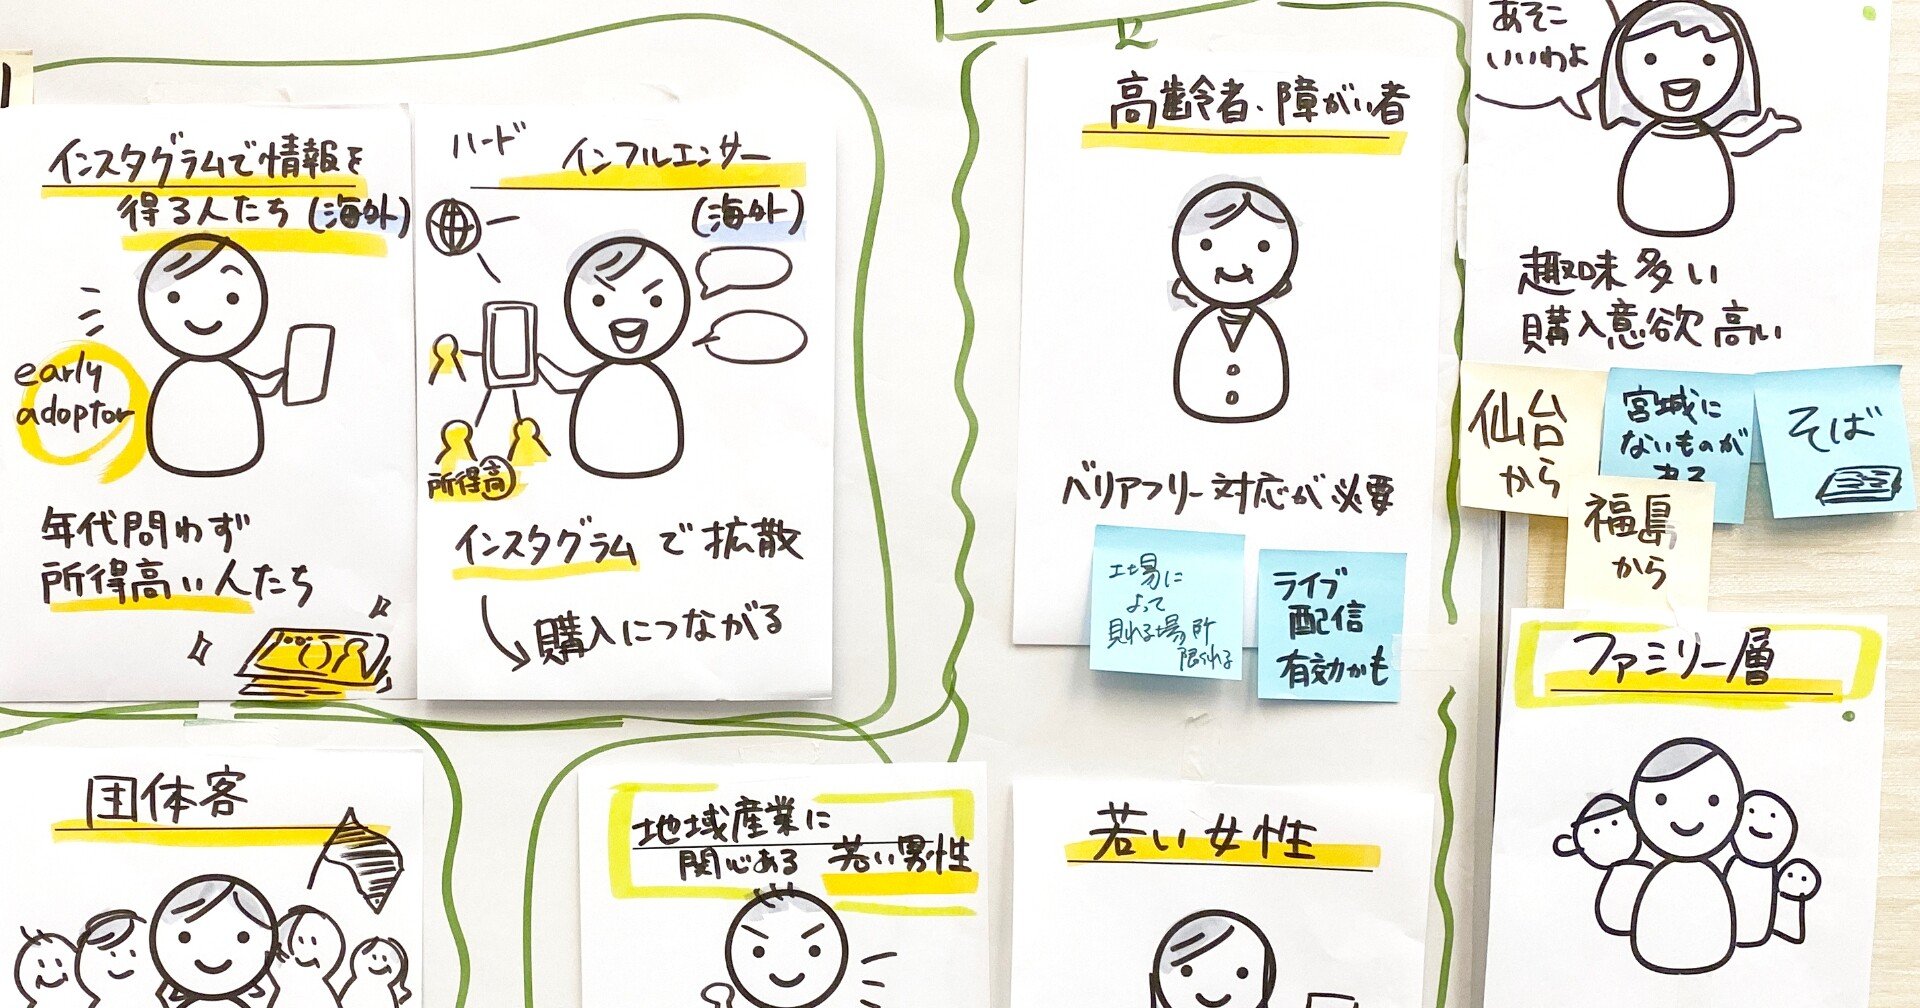 インスタグラムで情報を
得る人たち(海外)
early
adoptor
年代問わず
所得高い人たち
ハード
インフルエンサー
(海外)
所得高
インスタグラムで拡散
購入につながる
高齢者、障がい者
バリアフリー対応が必要
工場に
よって
見れる場所
限られる
ライブ
配信
有効かも
あそこ
いいわよ
趣味多い
購入意欲高い
仙台
から
宮城に
ないものが
ある
そば
福島
から
ファミリー層
団体客
地域産業に
関心ある 若い男性
若い女性